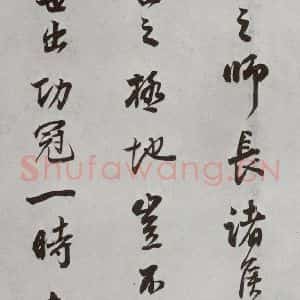 之師長諸侯
之極地豈不
世出功冠一時
Shufawang.CN